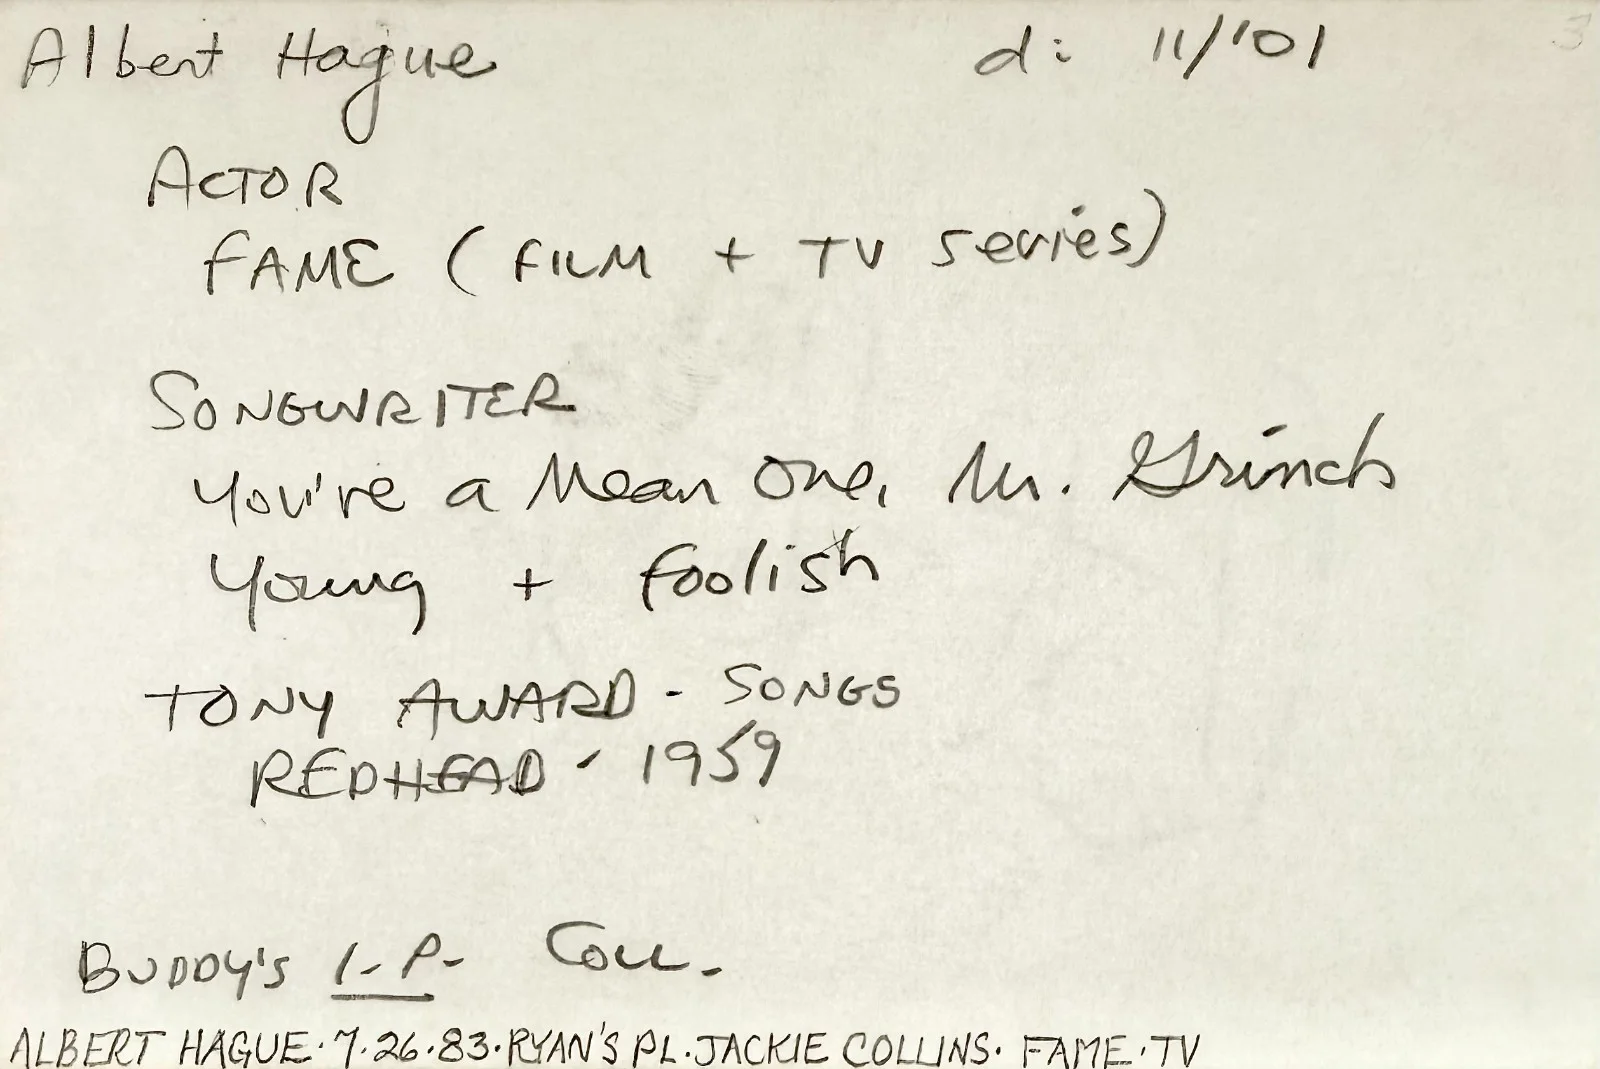 Albert Hague d: 11/'01 3
ACTOR
FAME (FILM + TV series)
SONGWRITER
You're a Mean One, Mr. Grinch
Young + Foolish
TONY AWARD - SONGS
REDHEAD - 1959
BUDDY'S I.P. COLL.
ALBERT HAGUE · 7·26·83 · RYAN'S PL · JACKIE COLLINS · FAME · TV